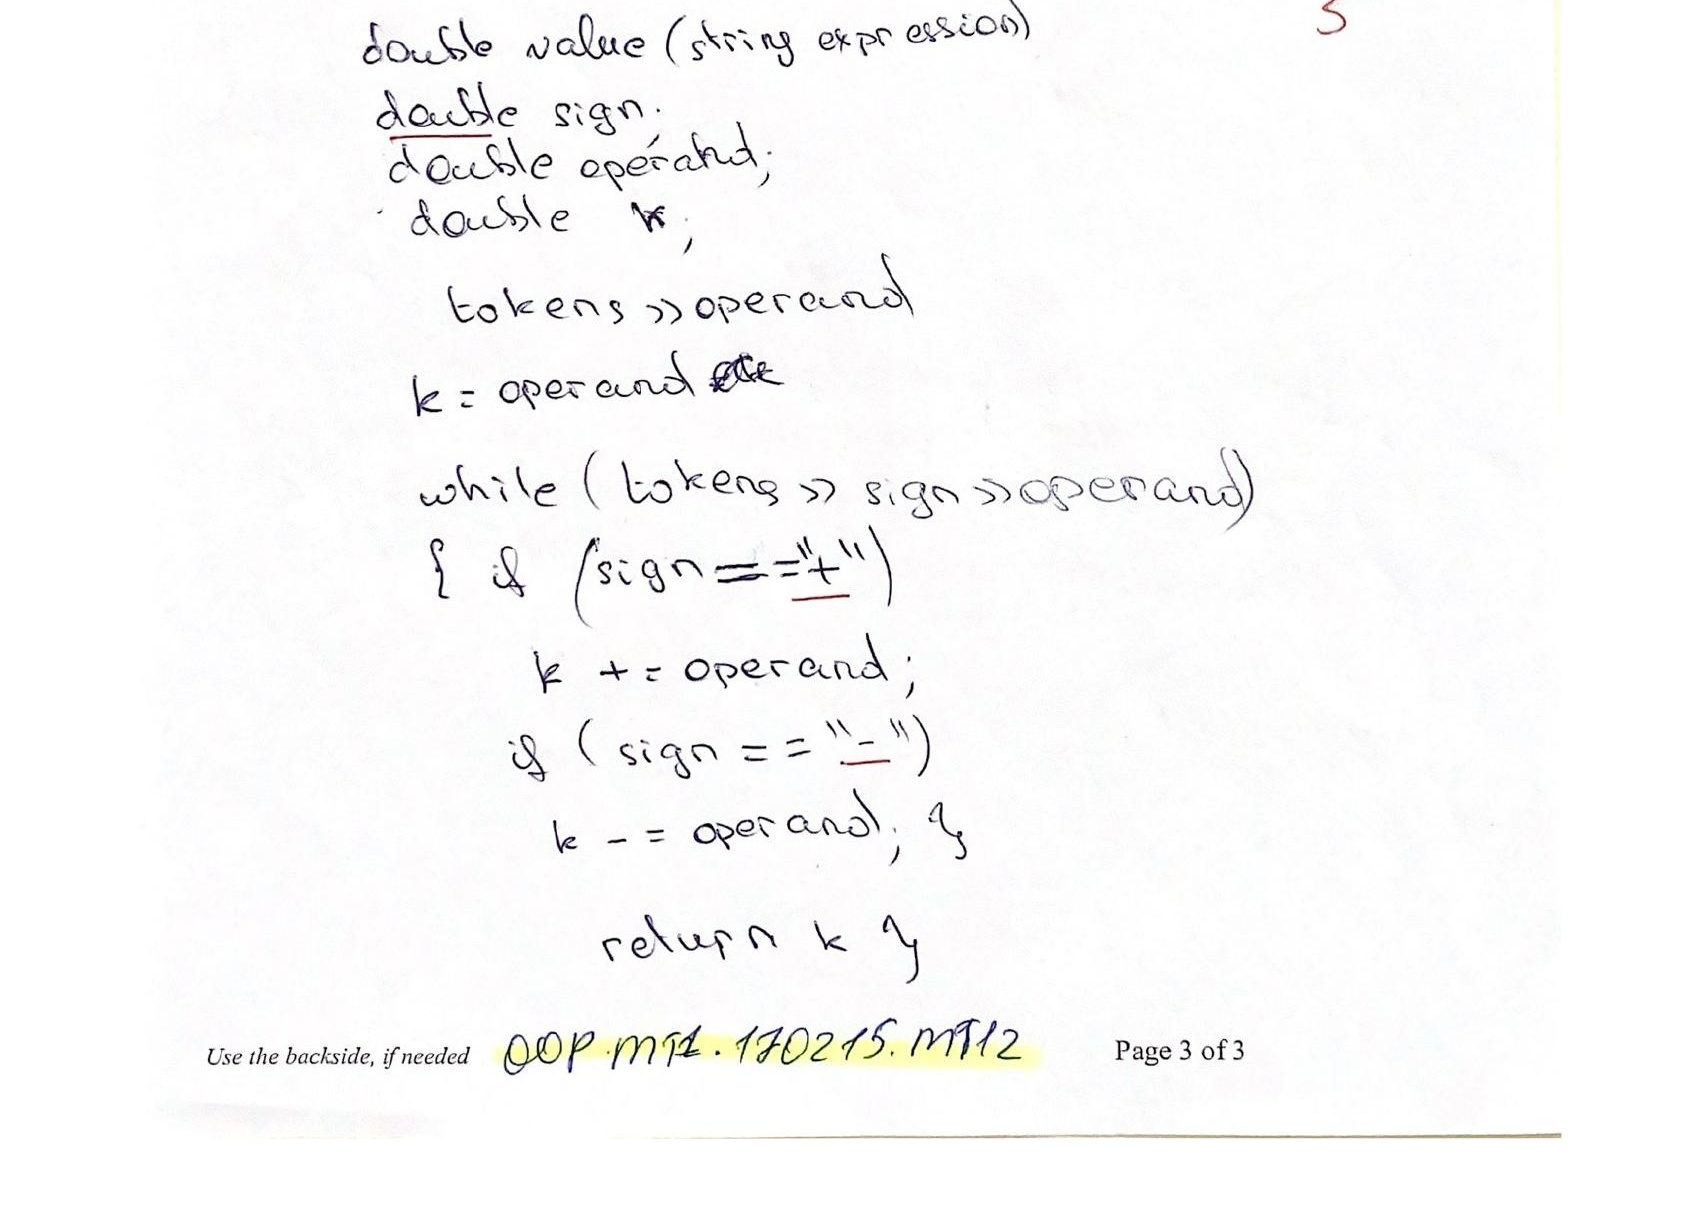 double value (string expression)
5
double sign;
double operand;
double k;
tokens >> operand
k = operand
while (tokens >> sign >> operand)
{ if (sign == "+")
k += operand;
if (sign == "-")
k -= operand; }
return k }
Use the backside, if needed OOP.MT1.170215.MT12 Page 3 of 3